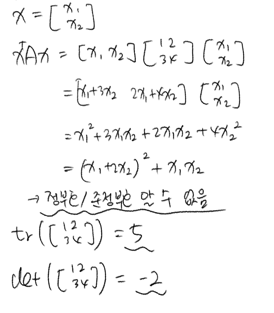 x = [x₁ x₂]
xᵀAx = [x₁ x₂] [1 2 3 4] [x₁ x₂]
= [x₁+3x₂ 2x₁+4x₂] [x₁ x₂]
= x₁²+3x₁x₂+2x₁x₂+4x₂²
= (x₁+2x₂)²+x₁x₂
→ 정부호/준정부호 알 수 없음
tr([1 2 3 4]) = 5
det([1 2 3 4]) = -2